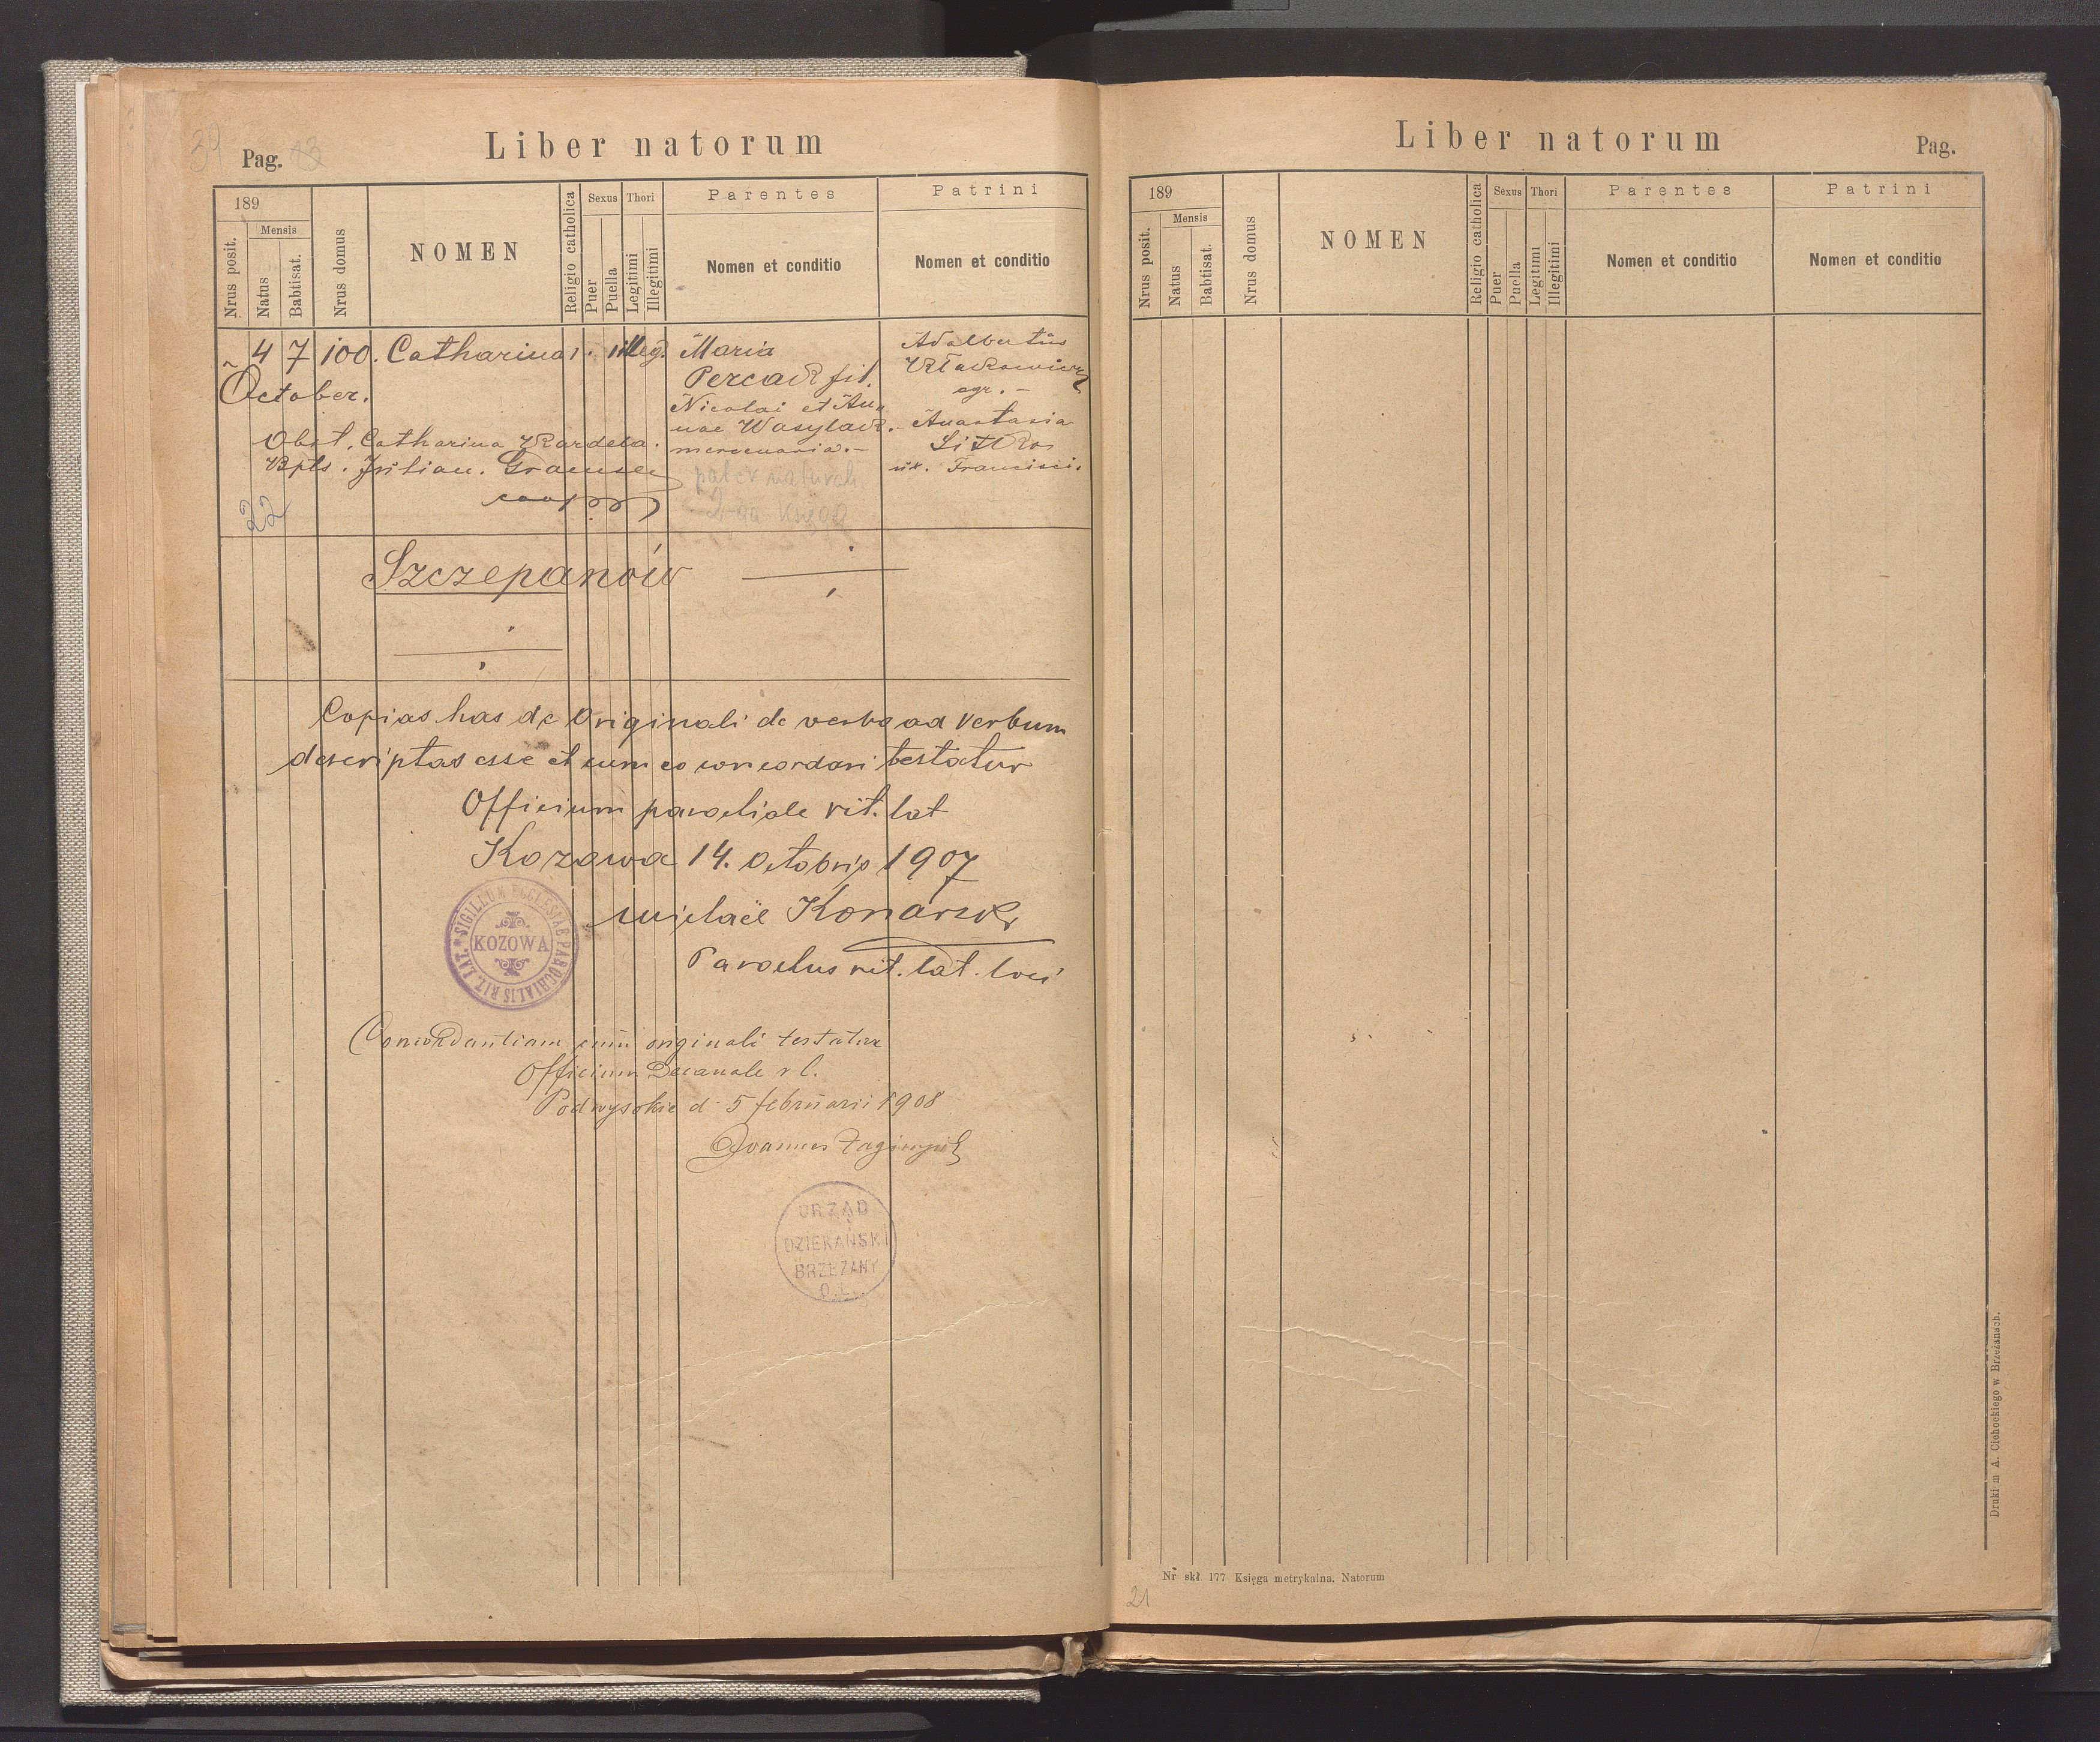 39
Pag. 43
Liber natorum
189
Mensis
Nrus posit.
Natus
Babtisat.
Nrus domus
NOMEN
Religio catholica
Sexus
Puer
Puella
Thori
Legitimi
Illegitimi
Parentes
Nomen et conditio
Patrini
Nomen et conditio
4 7 100. Catharina 1 . 1 illeg.
October.
Obst. Catharina Kardela.
Bpts. Julian.
coop
22
Maria
Percak fil.
Nicolai et An-
nae Wasylak.
mercenaria.-
pater naturalis
Adalbertus
agr. -
Anastasia
ux. Francisci.
Szczepanów
Copias has de Originali de verbo ad verbum
descriptas esse et cum eo concordari testatur
Officium parochiale rit. lat
Kozowa 14. Octobris 1907
Michaël Konarski
Parochus rit. lat. loci
SIGILLUM ECCLESIAE PAROCHIALIS RIT. LAT.
KOZOWA
Concordantiam cum originali testatur
Officium Decanale r l.
Podwysokie d. 5 februarii 1908
Joannes
URZĄD
DZIEKAŃSKI
BRZEŻANY
O. Ł.
Liber natorum
Pag.
189
Mensis
Nrus posit.
Natus
Babtisat.
Nrus domus
NOMEN
Religio catholica
Sexus
Puer
Puella
Thori
Legitimi
Illegitimi
Parentes
Nomen et conditio
Patrini
Nomen et conditio
Druki m A. Cichockiego w Brzeżanach.
Nr skł. 177 Księga metrykalna. Natorum
21